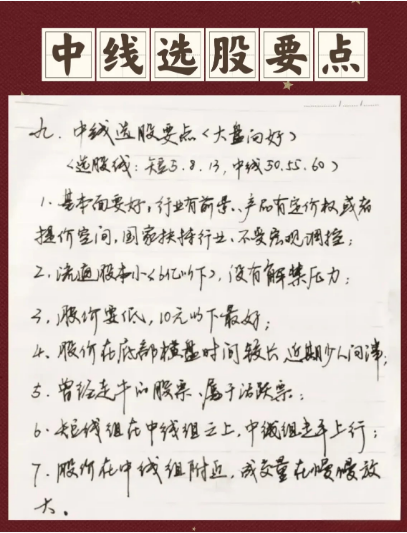 中线选股要点
九.中线选股要点〈大盘向好〉
〈选股线:短5.8.13,中线50.55.60〉
1.基本面要好,行业有前景、产品有定价权或者
提价空间,国家扶持行业、不受宏观调控;
2.流通股本小〈6亿以下〉,没有解禁压力;
3.股价要低,10元以下最好;
4.股价在底部横盘时间较长近期少人问津;
5.曾经走牛的股票、属于活跃票;
6.短线组在中线组之上,中线组走平上行;
7.股价在中线组附近,成交量在慢慢放
大。